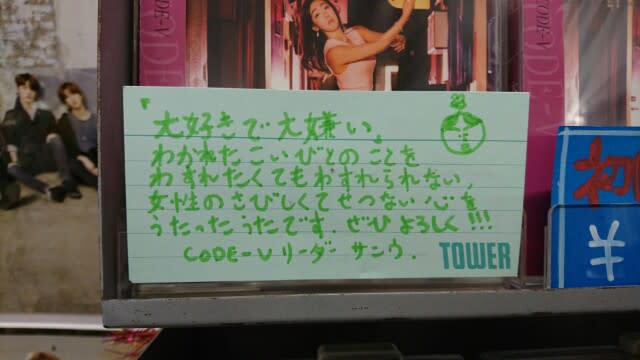 CODE-V
CODE-V
『
大好きで大嫌い』
わかれたこいびとのことを
わすれたくてもわすれられない、
女性のさびしくてせつない心を
うたったうたです. ぜひ よろしく!!!
CODE-V リーダー サンウ.
TOWER
初
¥